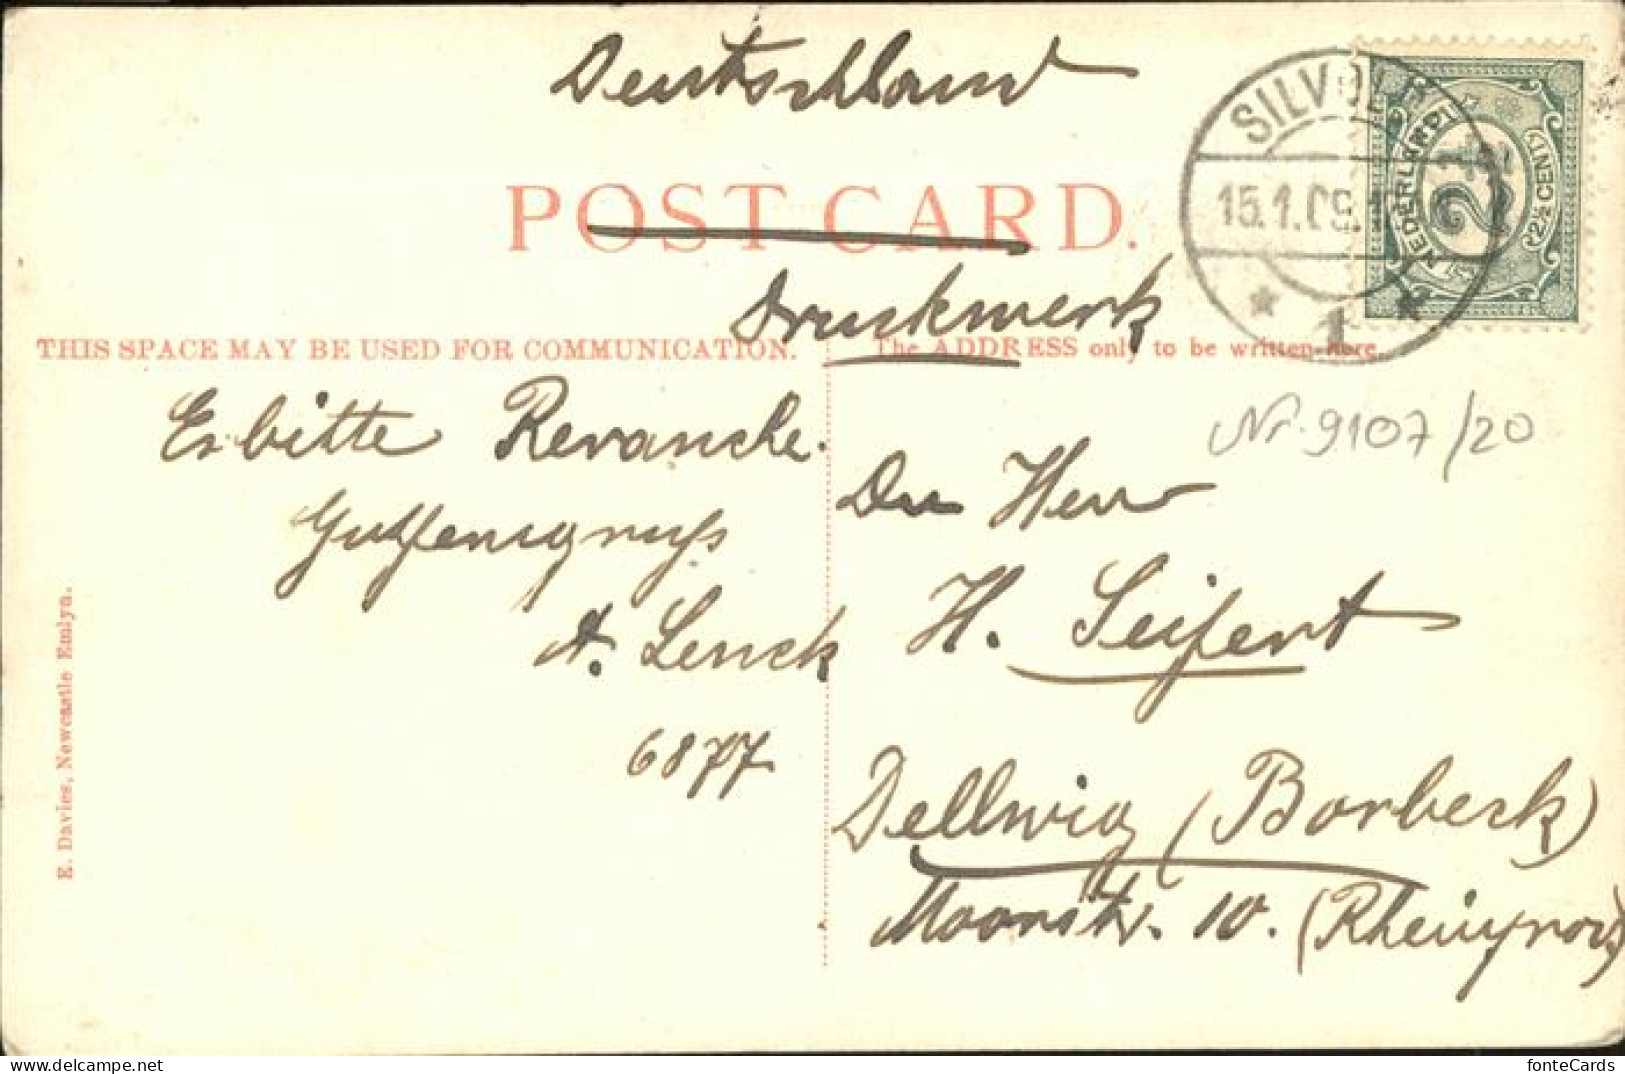 Deutschland
POST CARD.
Druckwerk
SILVOLD
15.1.09.1
1
NEDERLAND
2½
2½ CENT
THIS SPACE MAY BE USED FOR COMMUNICATION.
The ADDRESS only to be written here.
Nr. 9107/20
Erbitte Revanche.
Gutfernigruß
A. Lenck
6877
Herr
H. Seifert
Dellwig (Borbeck)
Moorstr. 10. (Rheinprov.)
E. Davies, Newcastle Emlyn.
www.delcampe.net
fonteCards